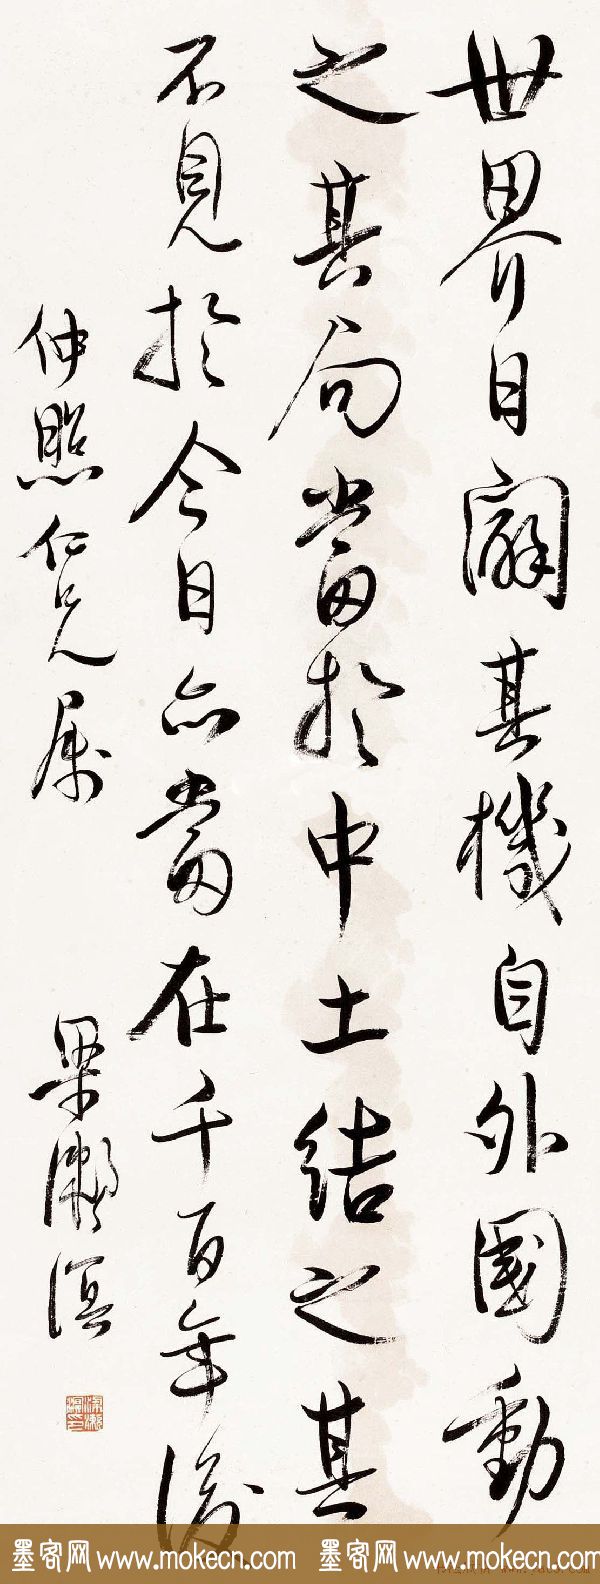 世界日闢其機自外國動
之其局當於中土結之其
不見於今日亦當在千百年後
仲照仁兄属
梁漱溟
墨客网 www.mokecn.com 墨客网 www.mokecn.com